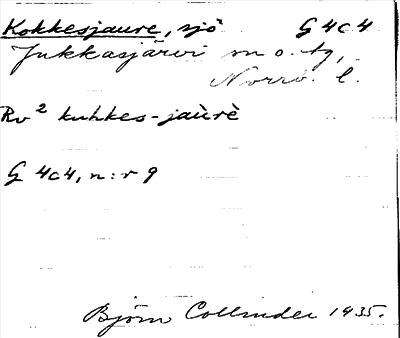 Kokkesjaure, sjö G 4c4
Jukkasjärvi sn o. tg,
Norrb. l.
Rv² kuhkes-jaùrè
G 4c4, n:r 9
Björn Collinder 1935.